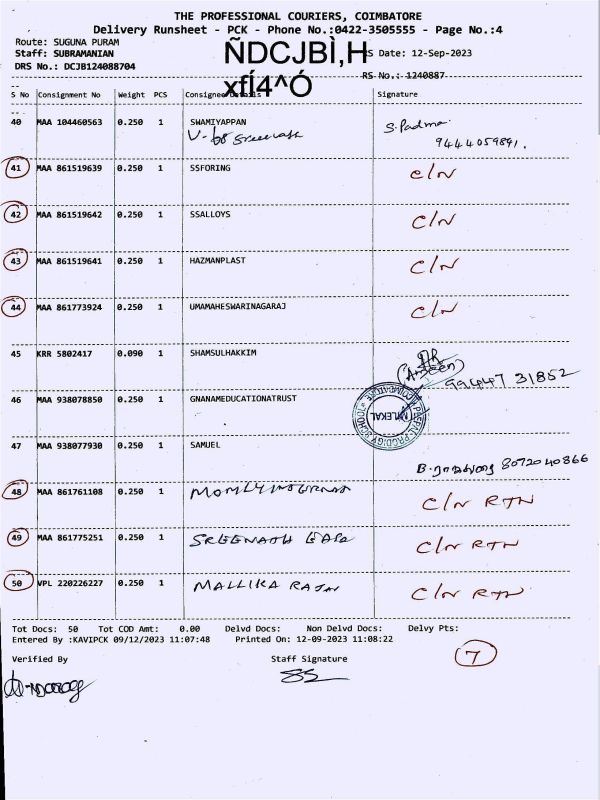 THE PROFESSIONAL COURIERS, COIMBATORE
Delivery Runsheet - PCK - Phone No.:0422-3505555 - Page No.:4
Route: SUGUNA PURAM
Staff: SUBRAMANIAN
ÑDCJBÌ,H
S Date: 12-Sep-2023
DRS No.: DCJB124088704
xfÍ4^Ó
RS No.: 1240887
S No Consignment No Weight PCS Consignee Details Signature
40 MAA 104460563 0.250 1 SWAMIYAPPAN S. Padma
9444059891.
41 MAA 861519639 0.250 1 SSFORING C/N
42 MAA 861519642 0.250 1 SSALLOYS C/N
43 MAA 861519641 0.250 1 HAZMANPLAST C/N
44 MAA 861773924 0.250 1 UMAMAHESWARINAGARAJ C/N
45 KRR 5802417 0.090 1 SHAMSULHAKKIM
(Ameen)
99447 31852
46 MAA 938078850 0.250 1 GNANAMEDUCATIONATRUST
47 MAA 938077930 0.250 1 SAMUEL
8072040866
48 MAA 861761108 0.250 1 C/N RTN
49 MAA 861775251 0.250 1 SREENATH C/N RTN
50 VPL 220226227 0.250 1 MALLIKA RAJAN C/N RTN
Tot Docs: 50 Tot COD Amt: 0.00 Delvd Docs: Non Delvd Docs: Delvy Pts:
Entered By :KAVIPCK 09/12/2023 11:07:48 Printed On: 12-09-2023 11:08:22
7
Verified By Staff Signature